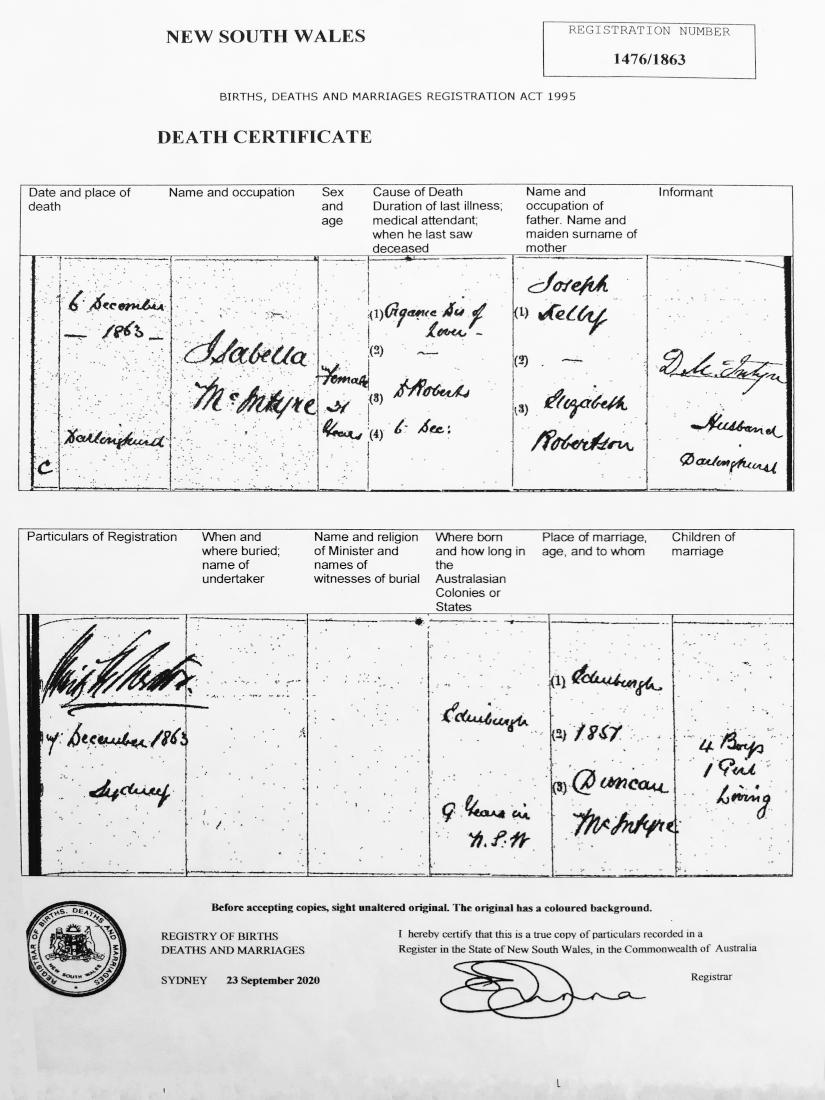 NEW SOUTH WALES
REGISTRATION NUMBER
1476/1863
BIRTHS, DEATHS AND MARRIAGES REGISTRATION ACT 1995
DEATH CERTIFICATE
Date and place of
death
Name and occupation
Sex
and
age
Cause of Death
Duration of last illness;
medical attendant;
when he last saw
deceased
Name and
occupation of
father. Name and
maiden surname of
mother
Informant
6 December
— 1863 —
Darlinghurst
C
Isabella
McIntyre
Female
31
Years
(1) Organic Dis of
Liver –
(2) —
(3) D Roberts
(4) 6 Dec:
Joseph
(1) Kelly
(2) —
(3) Elizabeth
Robertson
D McIntyre
Husband
Darlinghurst
Particulars of Registration
When and
where buried;
name of
undertaker
Name and religion
of Minister and
names of
witnesses of burial
Where born
and how long in
the
Australasian
Colonies or
States
Place of marriage,
age, and to whom
Children of
marriage
December 1863
Sydney
Edinburgh
9 Years in
N.S.W
(1) Edinburgh
(2) 1851
(3) Duncan
McIntyre
4 Boys
1 Girl
Living
Before accepting copies, sight unaltered original. The original has a coloured background.
REGISTRAR OF BIRTHS, DEATHS AND MARRIAGES
NEW SOUTH WALES
REGISTRY OF BIRTHS
DEATHS AND MARRIAGES
SYDNEY 23 September 2020
I hereby certify that this is a true copy of particulars recorded in a
Register in the State of New South Wales, in the Commonwealth of Australia
Registrar